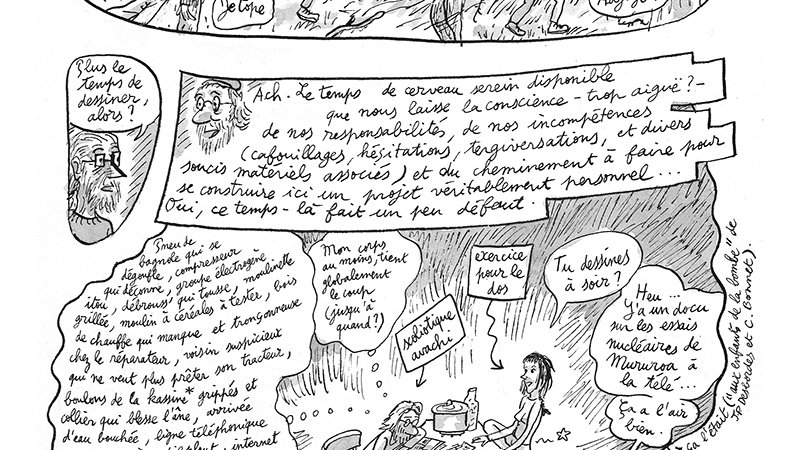 Je tope
Plus le
temps de
dessiner,
alors ?
Ach. Le temps de cerveau serein disponible
que nous laisse la conscience - trop aiguë ? -
de nos responsabilités, de nos incompétences
(cafouillages, hésitations, tergiversations, et divers
soucis matériels associés) et du cheminement à faire pour
se construire ici un projet véritablement personnel...
Oui, ce temps-là fait un peu défaut.
Pneu de
bagnole qui se
dégonfle, compresseur
qui déconne, groupe électrogène
itou, débrouss' qui tousse, moulinette
grillée, moulin à céréales à tester, bois
de chauffe qui manque et tronçonneuse
chez le réparateur, voisin suspicieux
qui ne veut plus prêter son tracteur,
boulons de la kassine* grippés et
collier qui blesse l'âne, arrivée
d'eau bouchée, ligne téléphonique
internet
Mon corps,
au moins, tient
globalement
le coup
(jusqu'à
quand ?)
scoliotique
avachi
exercice
pour le
dos
Tu dessines
à soir ?
Heu...
Y'a un docu
sur les essais
nucléaires de
Mururoa à
la télé...
Ça a l'air
bien.
* Ça l'était ("aux enfants de la bombe" de
JP Desbordes et C. Bonnet).